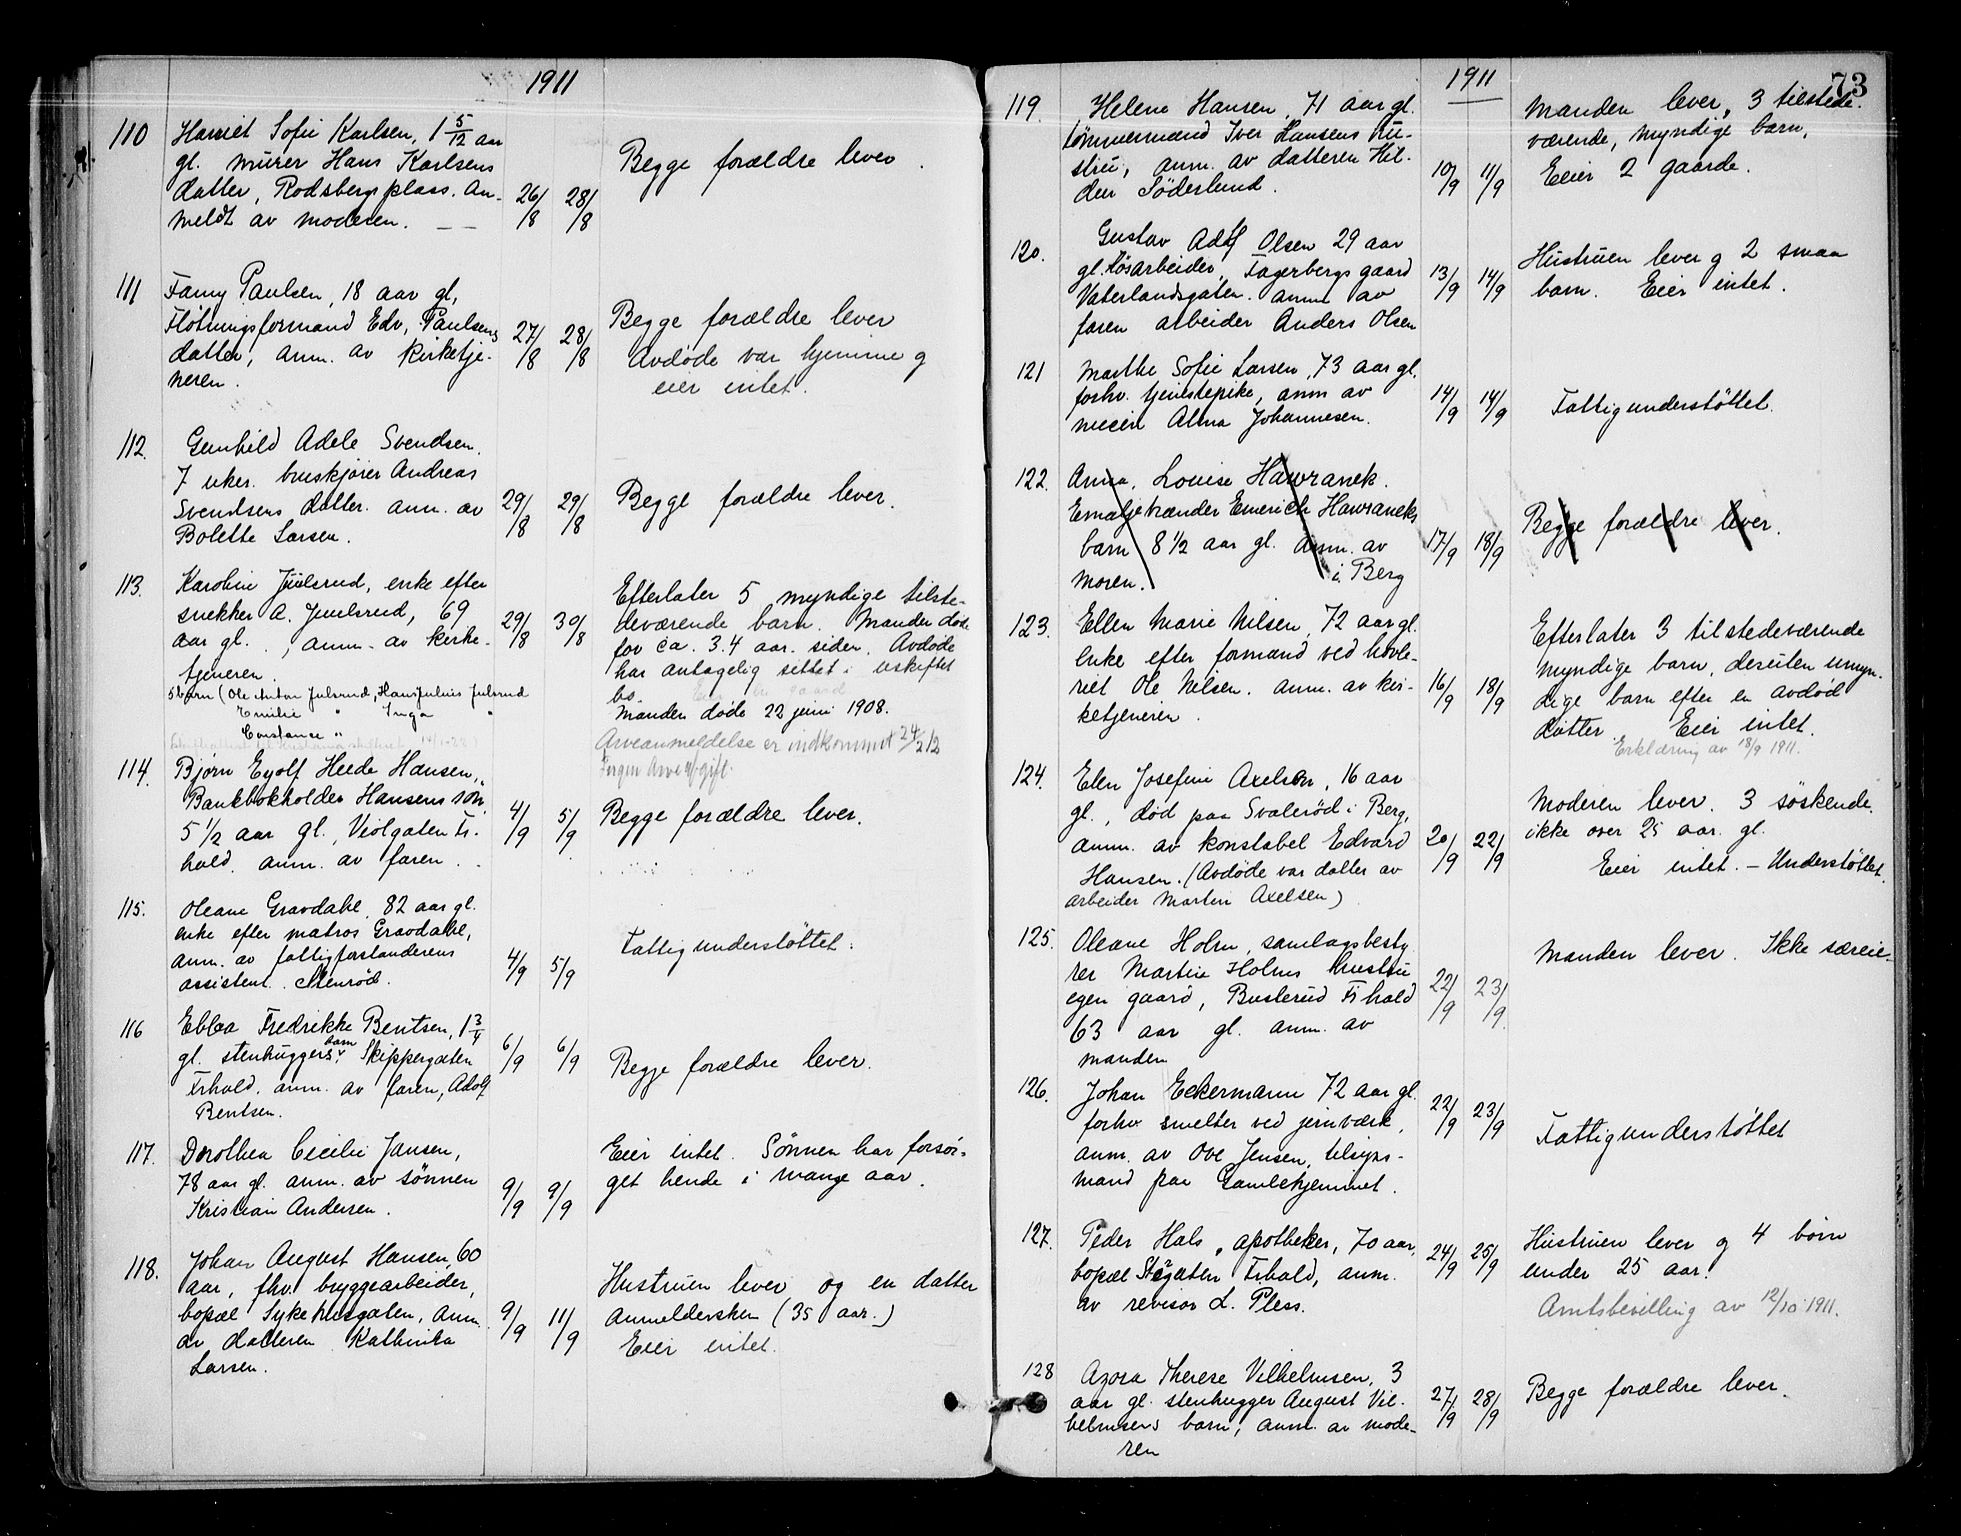 1911
110 Harriet Sofie Karlsen, 1 5/12 aar
gl. murer Hans Karlsens
datter, Rødsbergs plass. An-
meldt av moderen. 26/8 28/8
Begge forældre lever.
111 Fanny Paulsen, 18 aar gl,
Fløtningsformand Edv, Paulsens
datter, anm. av kirketje-
neren. 27/8 28/8
Begge forældre lever
Avdøde var hjemme og
eier intet.
112. Gunhild Adele Svendsen.
7 uker. bruskjører Andreas
Svendsens datter. anm. av
Bolette Larsen. 29/8 29/8
Begge forældre lever.
113. Karoline Juulsrud, enke efter
snekker A. Juulsrud, 69
aar gl., anm. av kirke-
tjeneren. 29/8 30/8
5 barn (Ole Anton Julsrud, Hans Julius Julsrud
Emilie " Inga "
Constance "
Efterlater 5 myndige tilste-
deværende barn. Manden døde
for ca. 3.4 aar. siden. Avdøde
har antagelig sittet i uskiftet
bo.
Manden døde 22 juni 1908.
Arveanmeldelse er indkommet 24/2 12
Ingen Arveavgift.
114. Bjørn Eyolf Heede Hansen,
Bankbokholder Hansens søn
5 1/2 aar gl., Violgaten Fr.
hald. anm. av faren. 4/9 5/9
Begge forældre lever.
115. Oleane Gravdahl, 82 aar gl.
enke efter matros Gravdahl,
anm. av fattigforstanderens
assistent 4/9 5/9
Fattigunderstøttet.
116 Ebba Fredrikke Bentsen, 1 3/4
gl. stenhuggers barn Skippergaten
Frhald. anm. av faren, Adolf
Bentsen. 6/9 6/9
Begge forældre lever.
117. Dorothea Cecilie Jansen,
78 aar gl. anm. av sønnen
Kristian Andersen. 9/9 9/9
Eier intet. Sønnen har forsør-
get hende i mange aar.
118. Johan August Hansen, 60
aar, fhv. bryggearbeider,
bopæl Sykehusgaten, anm.
av datteren Kathinka
Larsen. 9/9 11/9
Hustruen lever og en datter
anmeldersken (35 aar.)
Eier intet.
1911
73
119. Helene Hansen, 71 aar gl.
tømmermand Iver Hansens hu-
stru, anm. av datteren Hil-
dur Söderlund. 10/9 11/9
Manden lever, 3 tilstede-
værende, myndige barn,
Eier 2 gaarde.
120. Gustav Adolf Olsen 29 aar
gl. løsarbeider, Fagerbergs gaard
Vaterlandsgaten. anm av
faren arbeider Anders Olsen 13/9 14/9
Hustruen lever og 2 smaa
barn. Eier intet.
121 Marthe Sofie Larsen, 73 aar gl.
forhv. tjenestepike, anm av
niecen Alma Johannesen. 14/9 14/9
Fattigunderstøttet.
122. Anna, Louise Hawranek.
Emaljebrænder Emerich Hawraneks
barn 8 1/2 aar gl. anm. av
moren. i Berg 17/9 18/9
Begge forældre lever.
123. Ellen Marie Nilsen, 72 aar gl.
enke efter formand ved høvle-
riet Ole Nilsen. anm. av kir-
ketjeneren. 16/9 18/9
Efterlater 3 tilstedeværende
myndige barn, desuten umyn-
dige barn efter en avdød
datter. Eier intet.
Erklæring av 18/9 1911.
124. Elen Josefine Axelson, 16 aar
gl., død paa Svalerød i Berg,
anm. av konstabel Edvard
Hansen. (Avdøde var datter av
arbeider Martin Axelsen) 20/9 22/9
Moderen lever. 3 søskende.
ikke over 25 aar. gl.
Eier intet. - Understøttet.
125. Oleane Holm, samlagsbesty
rer Martin Holms hustru
egen gaard, Busterud Frhald
63 aar gl. anm. av
manden 22/9 23/9
Manden lever. Ikke særeie.
126. Johan Eckermann 72 aar gl.
forhv smelter ved jernværk,
anm. av Ove Jensen, tilsyns-
mand paa Gamlehjemmet. 22/9 23/9
Fattigunderstøttet
127. Peder Hals, apotheker, 70 aar,
bopæl Frhald, anm.
av revisor L. Pless. 24/9 25/9
Hustruen lever og 4 børn
under 25 aar.
Amtsbevilling av 12/10 1911.
128 Azora Therese Vilhelmsen, 3
aar gl. stenhugger August Vil-
helmsens barn, anm. av mode-
ren 27/9 28/9
Begge forældre lever.